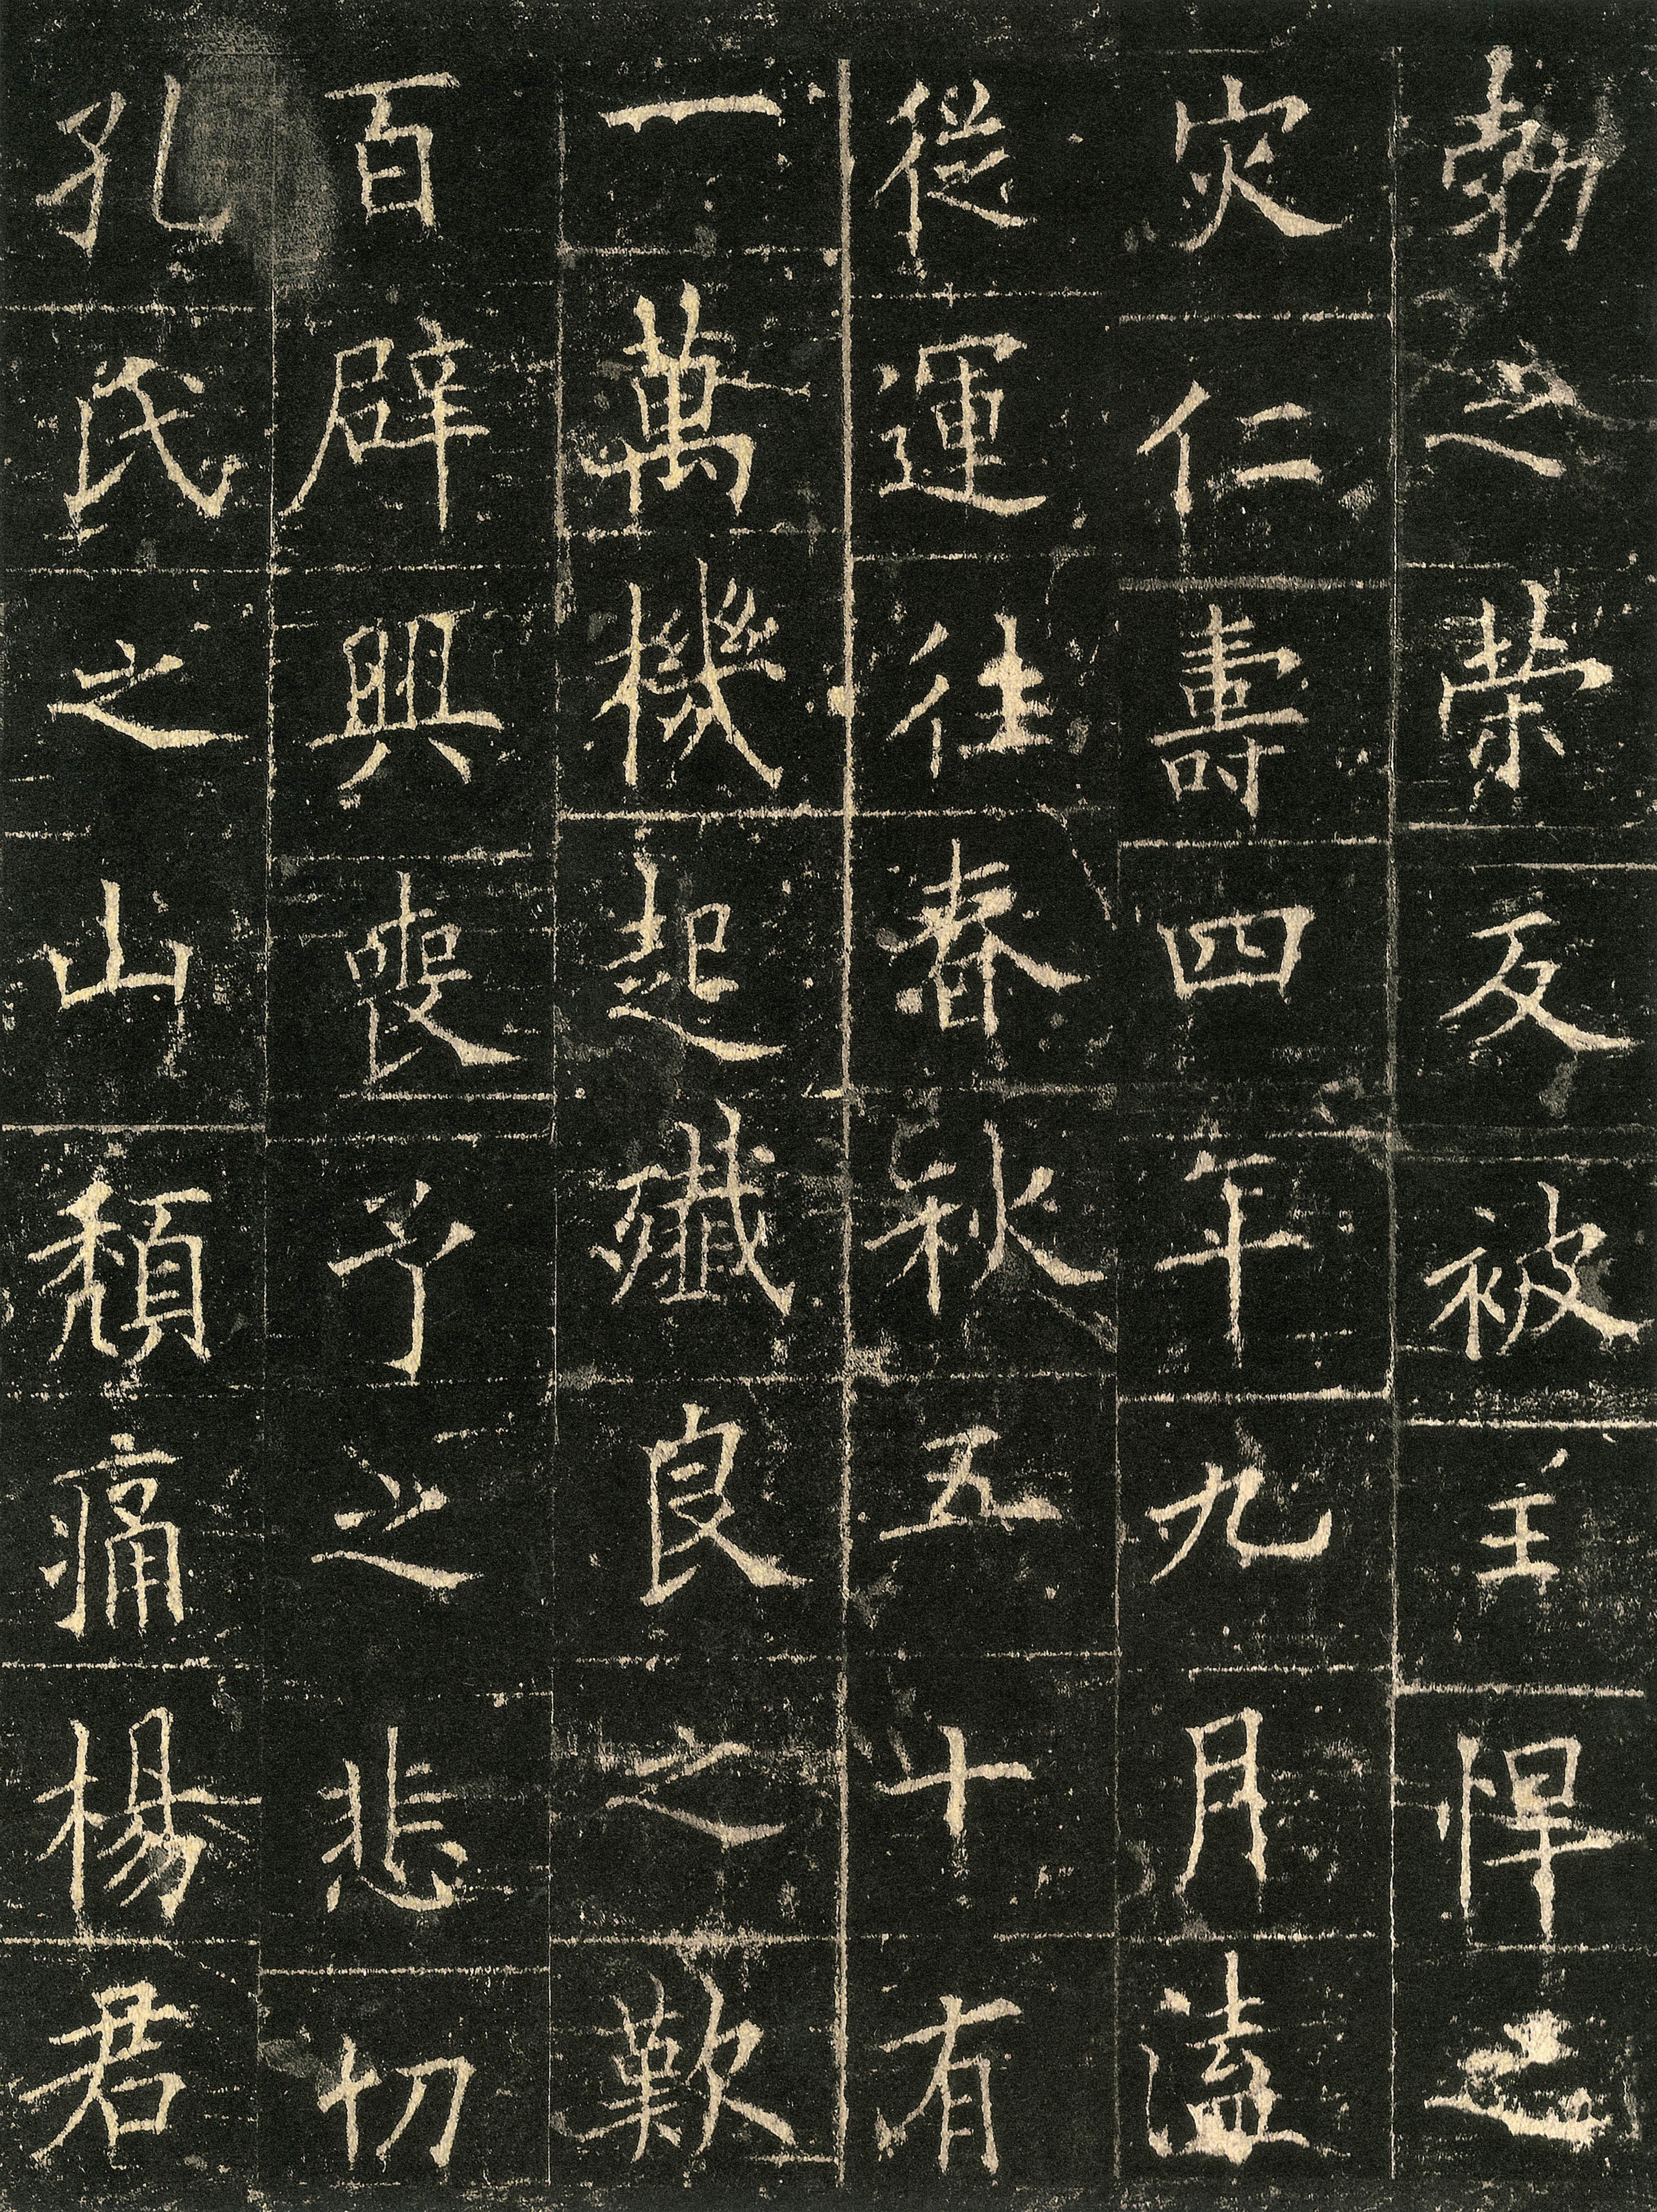 勃之榮反被主悍之
灾仁壽四年九月溘
從運往春秋五十有
一萬機起殲良之歎
百辟興喪予之悲切
孔氏之山頽痛楊君